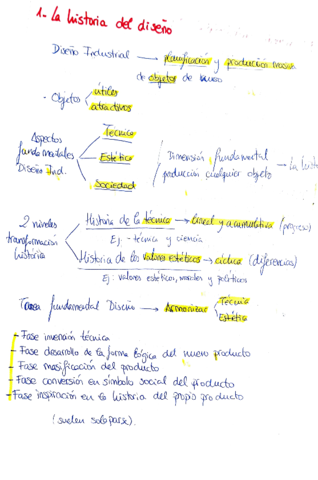 1- La historia del diseño
Diseño Industrial → planificación y producción masiva
de objetos de nuevo
- Objetos útiles
atractivos
Aspectos
fundamentales
Diseño Ind.
Técnica
Estética
Sociedad
Dimensión fundamental
producción cualquier objeto
→ La hist
2 niveles
transformación
historia
Historia de la técnica → lineal y acumulativa (progreso)
Ej: - técnica y ciencia
Historia de los valores estéticos → cíclica (diferencias)
Ej: valores estéticos, morales y políticos
Tarea fundamental Diseño → Armonizar Técnica
Estética
- Fase invención técnica
- Fase desarrollo de la forma lógica del nuevo producto
- Fase masificación del producto
- Fase conversión en símbolo social del producto
- Fase inspiración en la historia del propio producto
(suelen solaparse).